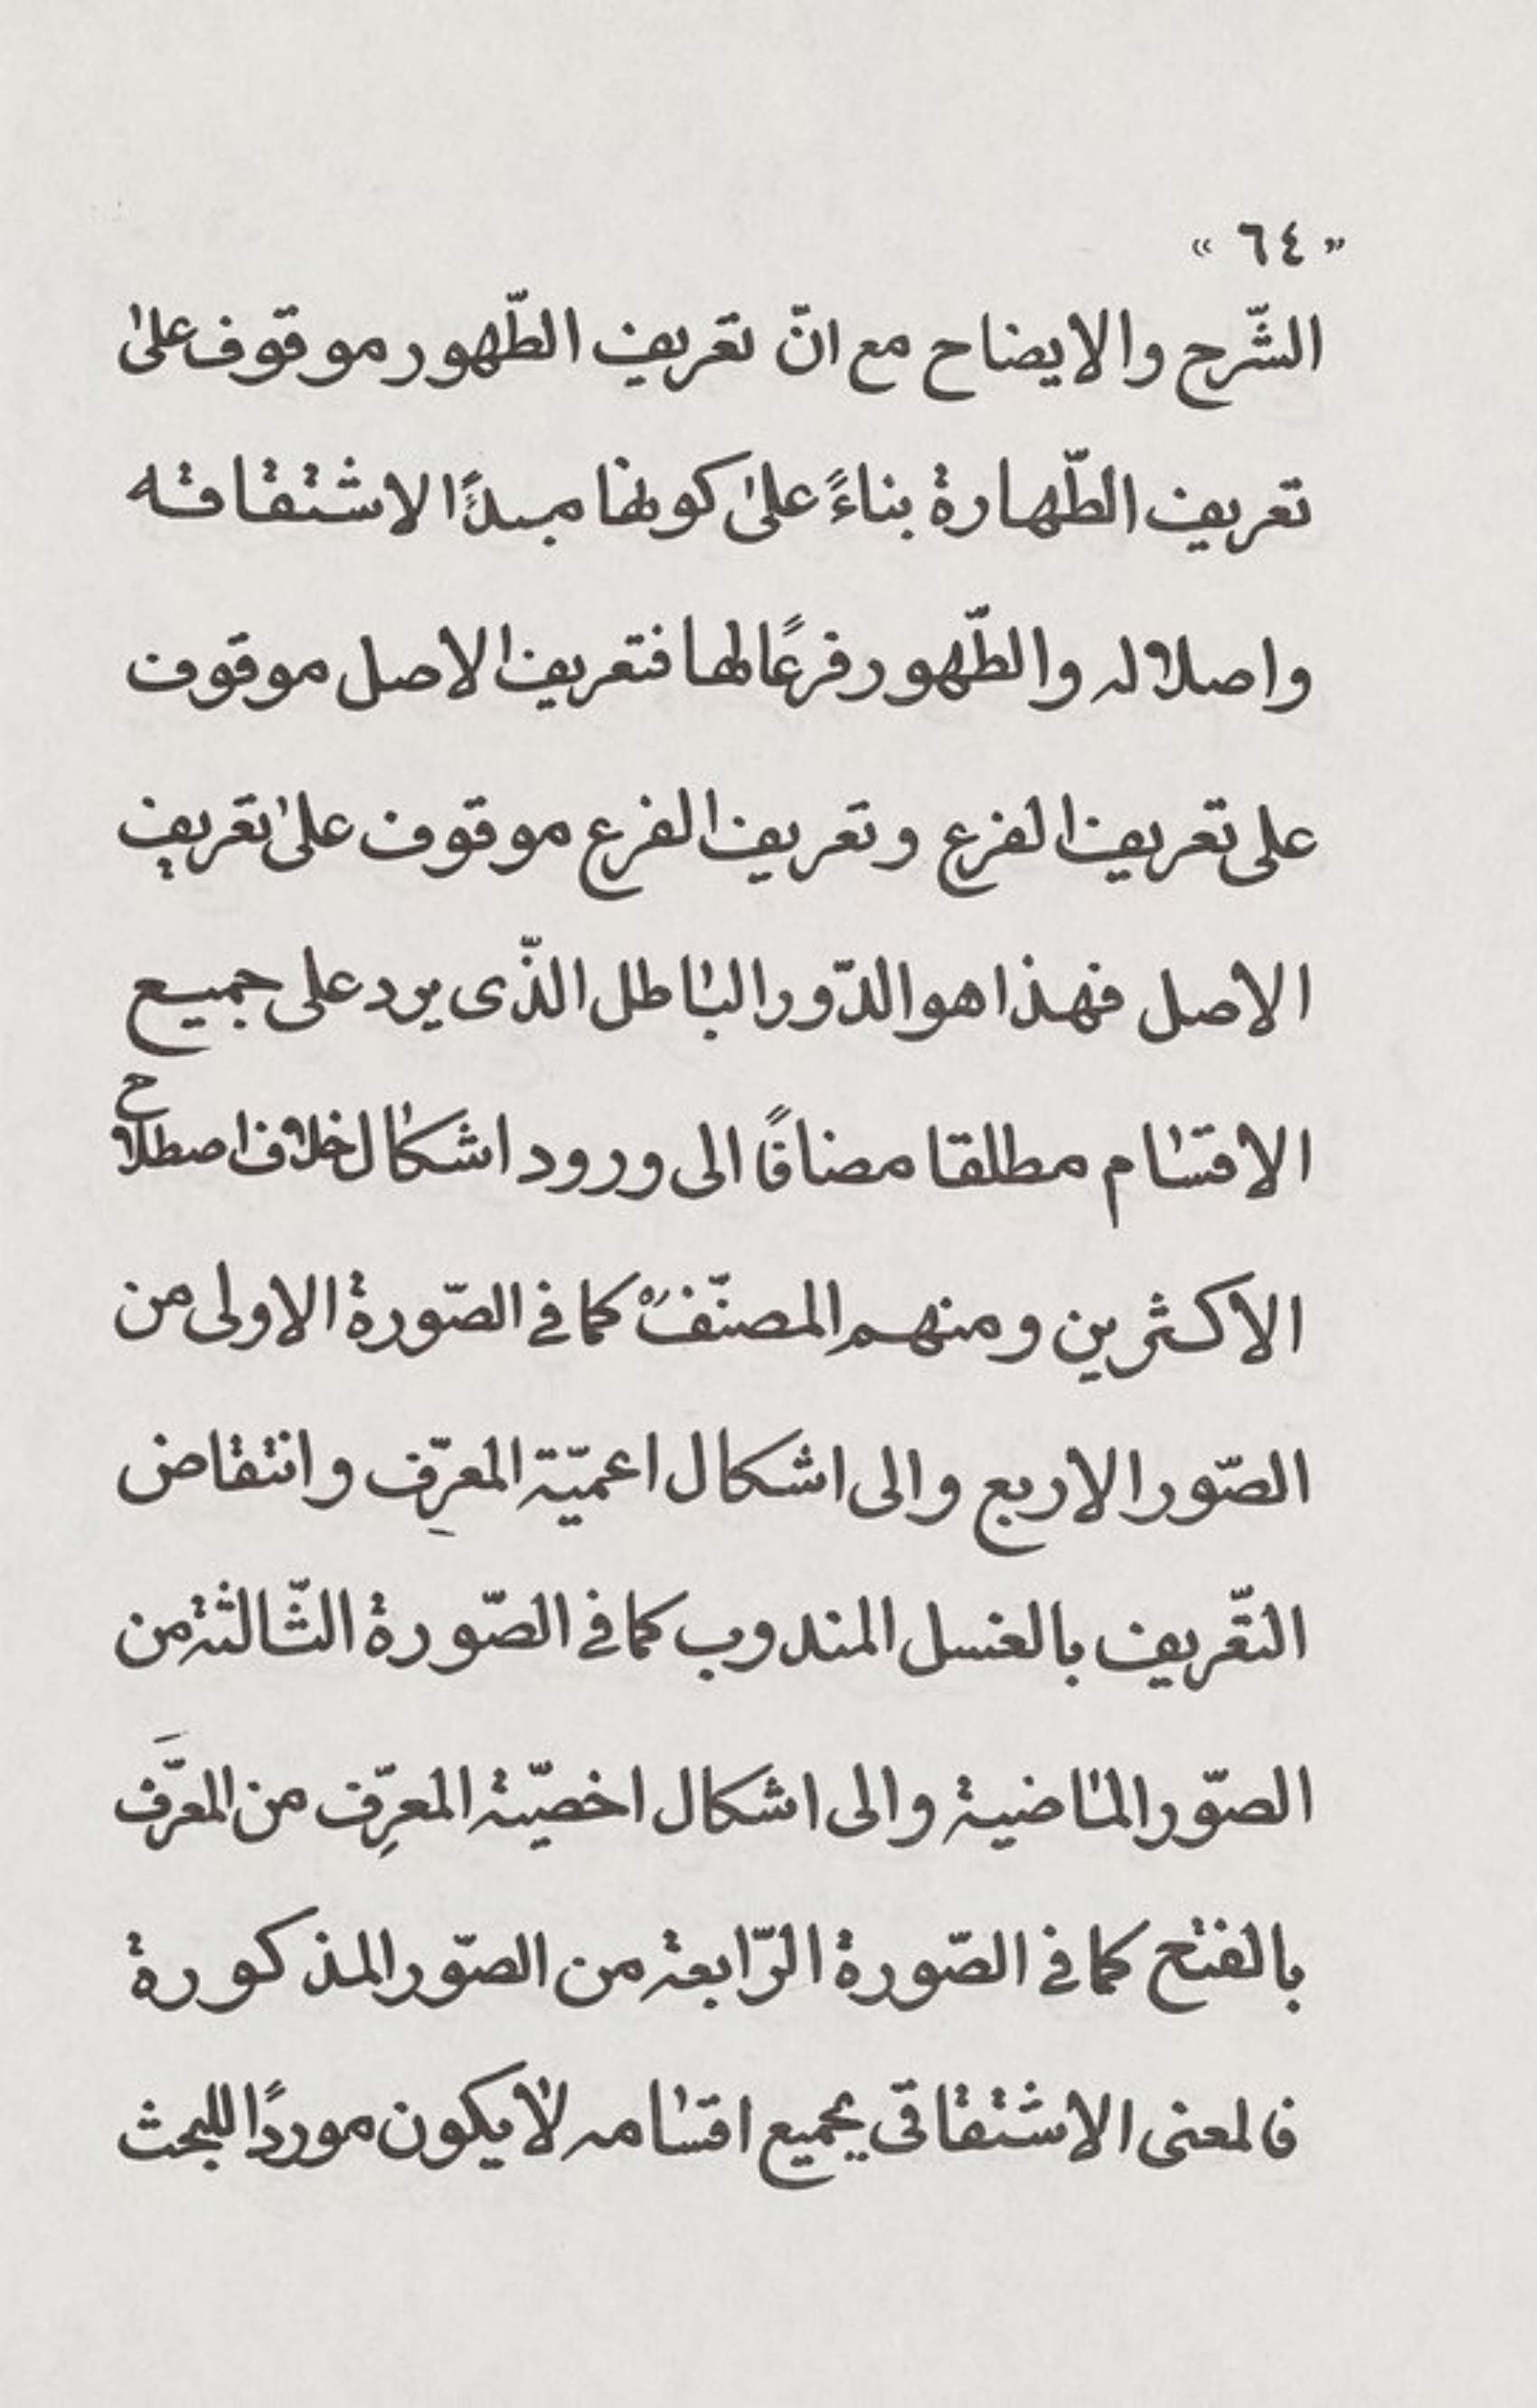 « ٦٤ »
الشّرح والايضاح مع انّ تعريف الطّهور موقوف علىٰ
تعريف الطّهارة بناءً علىٰ كونها مبدءًا لاشتقاقه
واصلا له والطّهور فرعًا لها فتعريف الاصل موقوف
على تعريف الفرع وتعريف الفرع موقوف علىٰ تعريف
الاصل فهذا هو الدّور الباطل الذّى يرد على جميع
الاقسٰام مطلقا مضافًا الى ورود اشكٰال خلاف اصطلاح
الاكثرين ومنهم المصنّف كما فى الصّورة الاولى من
الصّور الاربع والى اشكال اعميّة المعرِّف وانتقاض
التّعريف بالغسل المندوب كما فى الصّورة الثّالثة من
الصّور المٰاضية والى اشكال اخصيّة المعرِّف من المعرَّف
بالفتح كما فى الصّورة الرّابعة من الصّور المذكورة
فالمعنى الاشتقاقىّ بجميع اقسٰامه لاٰ يكون موردًا للبحث